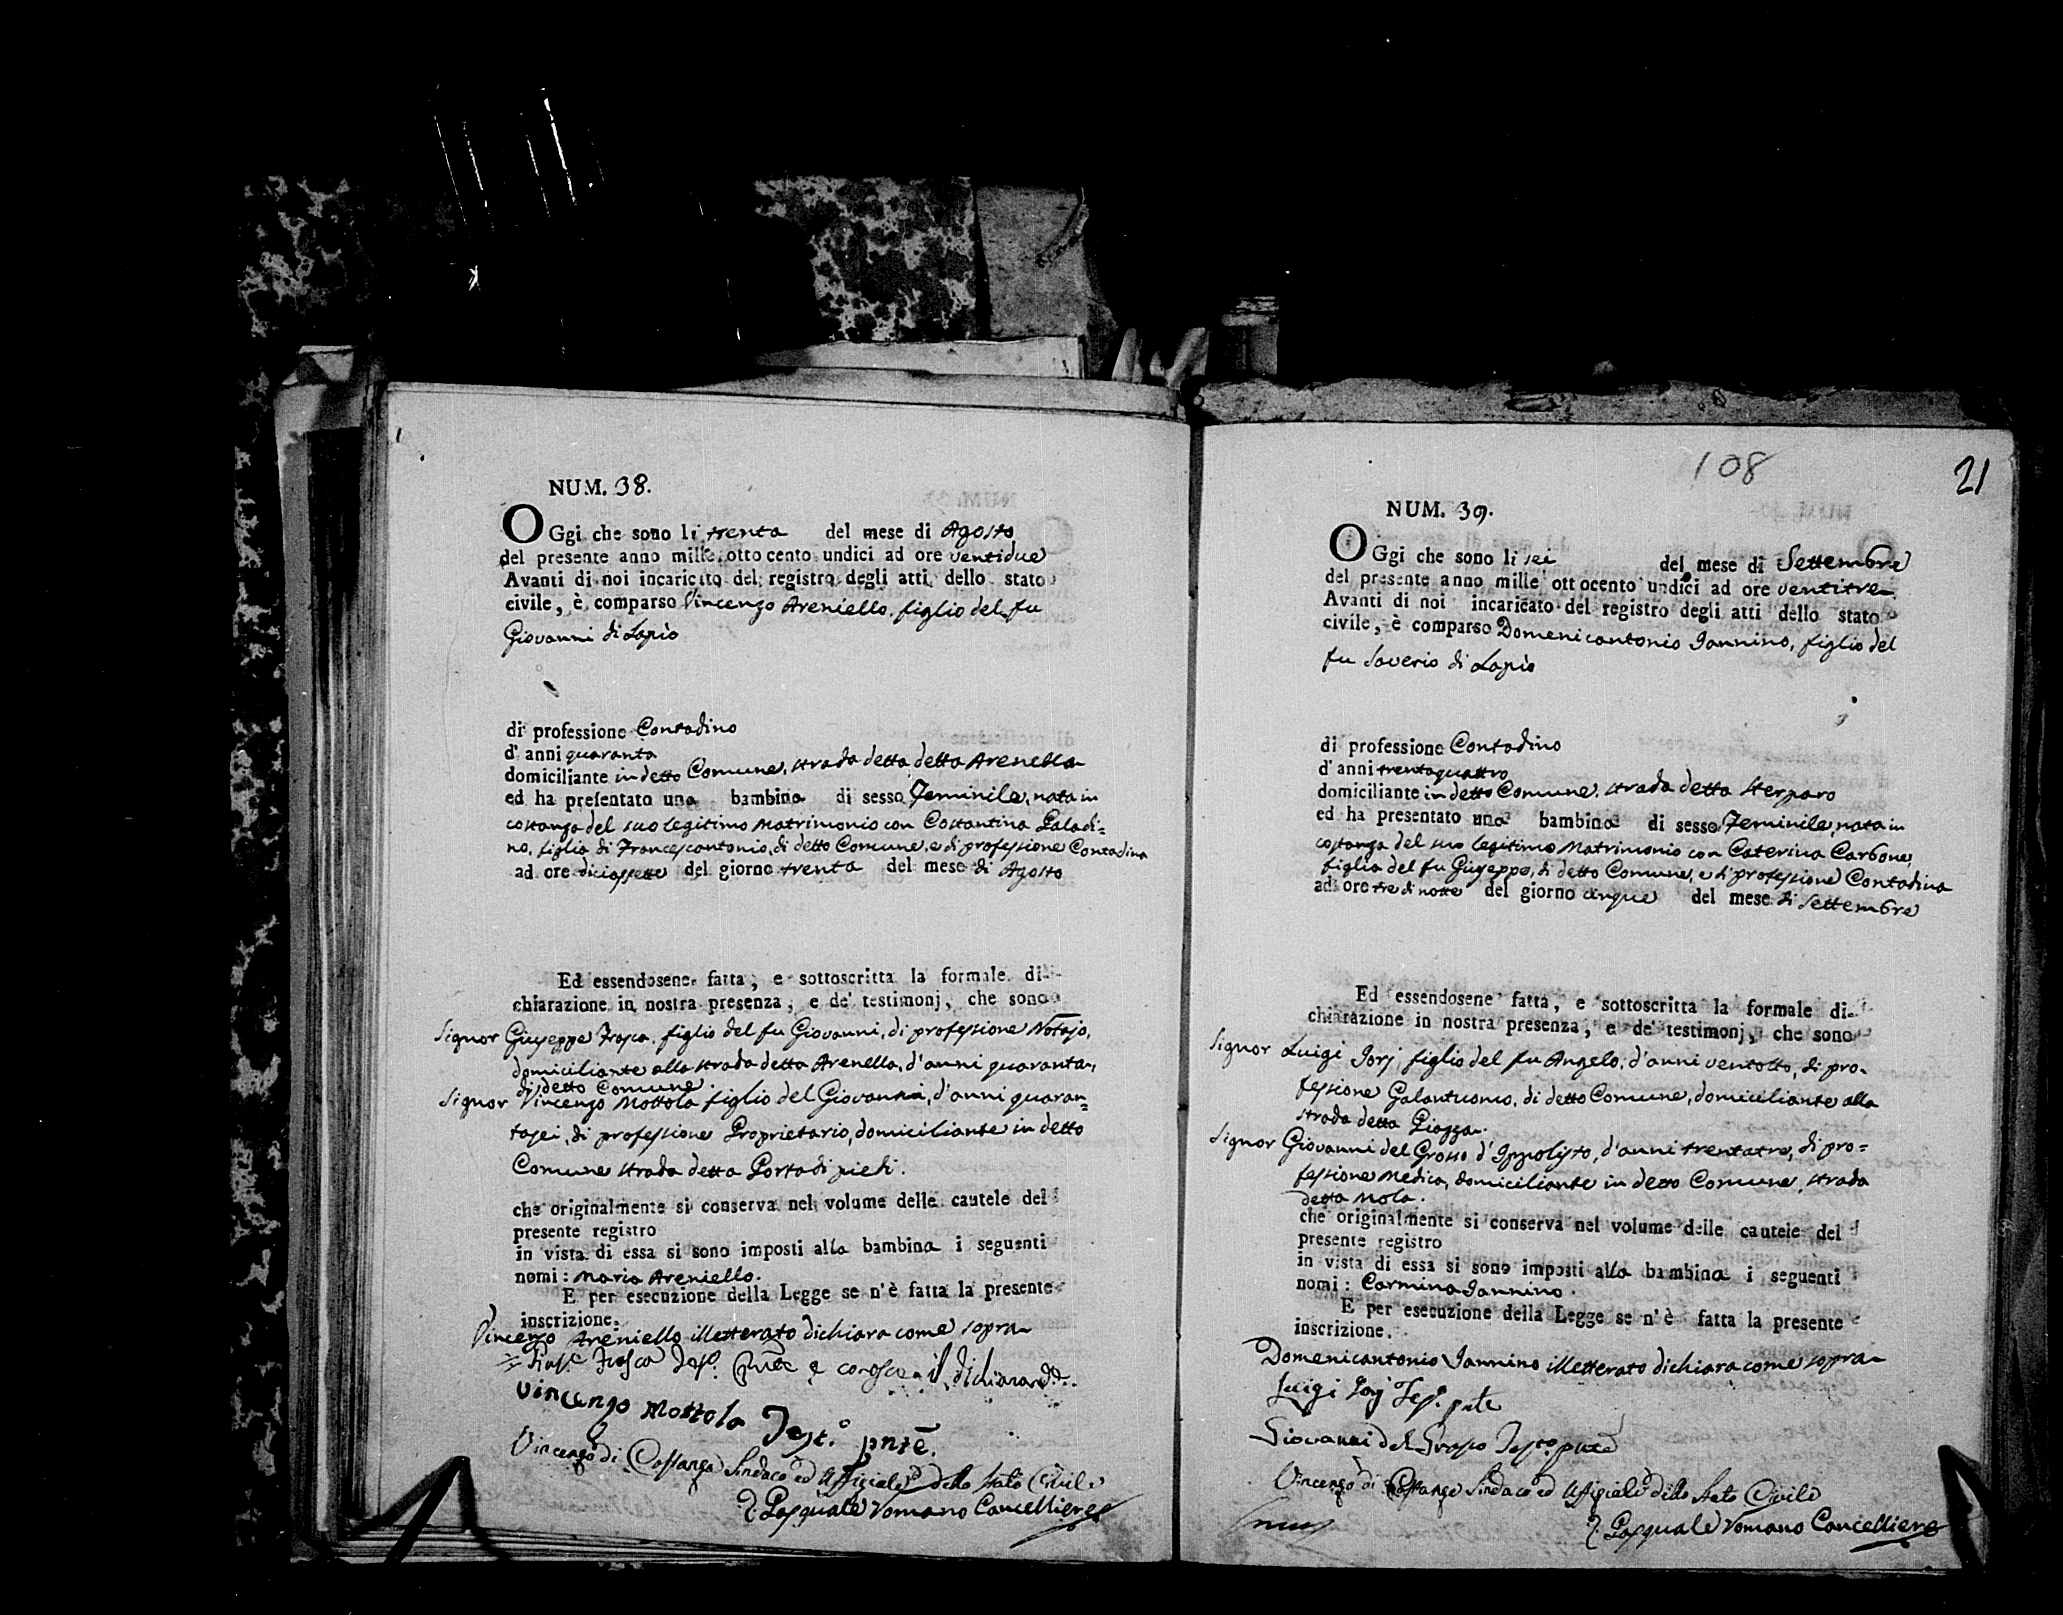 NUM. 38.
OGgi che sono li trenta del mese di Agosto
del presente anno mille otto cento undici ad ore ventidue
Avanti di noi incaricato del registro degli atti dello stato
civile, è comparso Vincenzo Areniello, figlio del fu
Giovanni di Lapio
di professione Contadino
d' anni quaranta
domiciliante in detto Comune, strada detta detta Arenella
ed ha presentato una bambina di sesso Feminile, nata in
costanza del suo legitimo Matrimonio con Costantina Paladi=
no, figlia di Francescantonio, di detto Comune, e di professione Contadina
ad ore diciassette del giorno trenta del mese di Agosto
Ed essendosene fatta, e sottoscritta la formale di-
chiarazione in nostra presenza, e de' testimonj, che sono
Signor Giuseppe Frosca, figlio del fu Giovanni, di professione Notajo,
domiciliante alla strada detta Arenella, d'anni quaranta,
di detto Comune
Signor Vincenzo Mottola figlio del Giovanni, d'anni quaran=
tasei, di professione Proprietario, domiciliante in detto
Comune strada detta Porta di piedi.
che originalmente si conserva nel volume delle cautele del
presente registro
in vista di essa si sono imposti alla bambina i seguenti
nomi: Maria Areniello.
E per esecuzione della Legge se n'è fatta la presente
inscrizione.
Vincenzo Areniello illetterato dichiara come sopra
Frosca il dichiarante.
Vincenzo Mottola Test.o pnte.
Vincenzo di Costanzo Sindaco ed Uffiziale dello Stato Civile
Pasquale Romano Cancelliere
108
21
NUM. 39.
OGgi che sono li sei del mese di Settembre
del presente anno mille ottocento undici ad ore ventitre
Avanti di noi incaricato del registro degli atti dello stato
civile, è comparso Domenicantonio Iannino, figlio del
fu Saverio di Lapio
di professione Contadino
d' anni trentaquattro
domiciliante in detto Comune, strada detta Sterparo
ed ha presentato una bambina di sesso Feminile, nata in
costanza del suo legitimo Matrimonio con Caterina Carbone,
figlia del fu Giuseppe, di detto Comune, e di professione Contadina
ad ore tre di notte del giorno cinque del mese di Settembre
Ed essendosene fatta, e sottoscritta la formale di-
chiarazione in nostra presenza, e de' testimonj, che sono
Signor Luigi Iorj figlio del fu Angelo, d'anni ventotto, di pro-
fessione Galantuomo, di detto Comune, domiciliante alla
strada detta Piazza.
Signor Giovanni del Grosso d'Ippolisto, d'anni trentatre, di pro=
fessione Medico, domiciliante in detto Comune, strada
detta Mola.
che originalmente si conserva nel volume delle cautele del
presente registro
in vista di essa si sono imposti alla bambina i seguenti
nomi: Carmina Iannino.
E per esecuzione della Legge se n'è fatta la presente
inscrizione.
Domenicantonio Iannino illetterato dichiara come sopra
Luigi Iorj Tes.o pnte
Giovanni del Grosso Testo pnte
Vincenzo di Costanzo Sindaco ed Uffiziale dello Stato Civile
Pasquale Romano Cancelliere